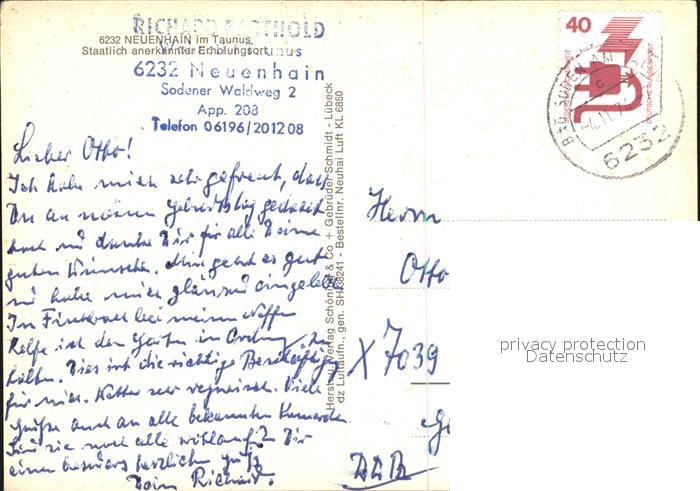 RICHARD BERTHOLD
6232 NEUENHAIN im Taunus
Staatlich anerkannter Erholungsort
6232 Neuenhain
Sodener Waldweg 2
App. 208
Telefon 06196/201208
40
DEUTSCHE BUNDESPOST
BAD SODEN AM
6232
Lieber Otto!
Ich habe mich sehr gefreut, dass
Du an meinen Geburtstag gedacht
hast und danke Dir für alle Deine
guten Wünsche. Mir geht es gut
und habe mich glänzend eingelebt.
In bei meinem Neffen
helfe ich den Garten in Ordnung zu
halten. Dies ist die richtige Beschäftigung
für mich. Wetter sehr regnerisch. Viele
Grüße auch an alle bekannten Kameraden
Sind sie noch alle wohlauf? Dir
einen besonders herzlichen Gruß
Dein Richard.
Herstell. u. Verlag Schöning & Co + Gebrüder Schmidt - Lübeck
dz Luftaufn., gen. SH 38241 - Bestellnr. Neuhai Luft KL 6860
Herrn
Otto
X 7039
DDR
privacy protection
Datenschutz